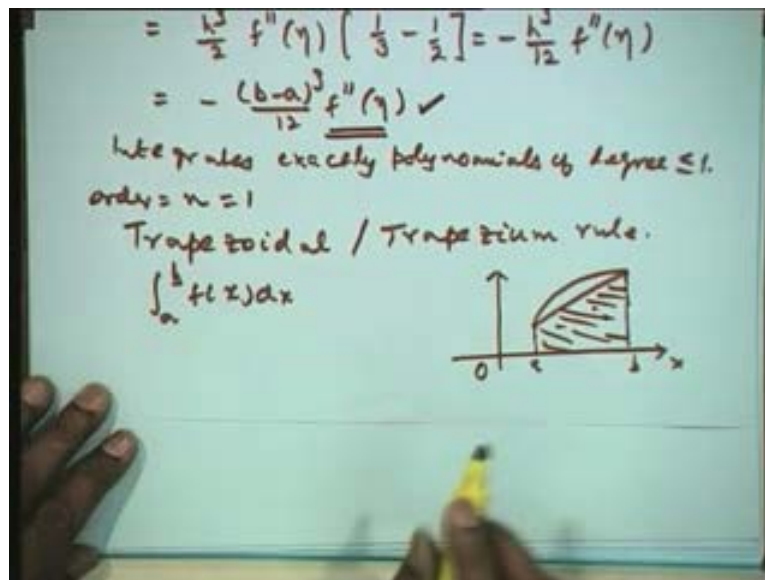 = h³/2 f''(η) [ 1/3 - 1/2 ] = - h³/12 f''(η)
= - (b-a)³/12 f''(η) ✓
Integrates exactly polynomials of degree ≤ 1.
order = n = 1
Trapezoidal / Trapezium rule.
∫_a^b f(x)dx
0 a b x